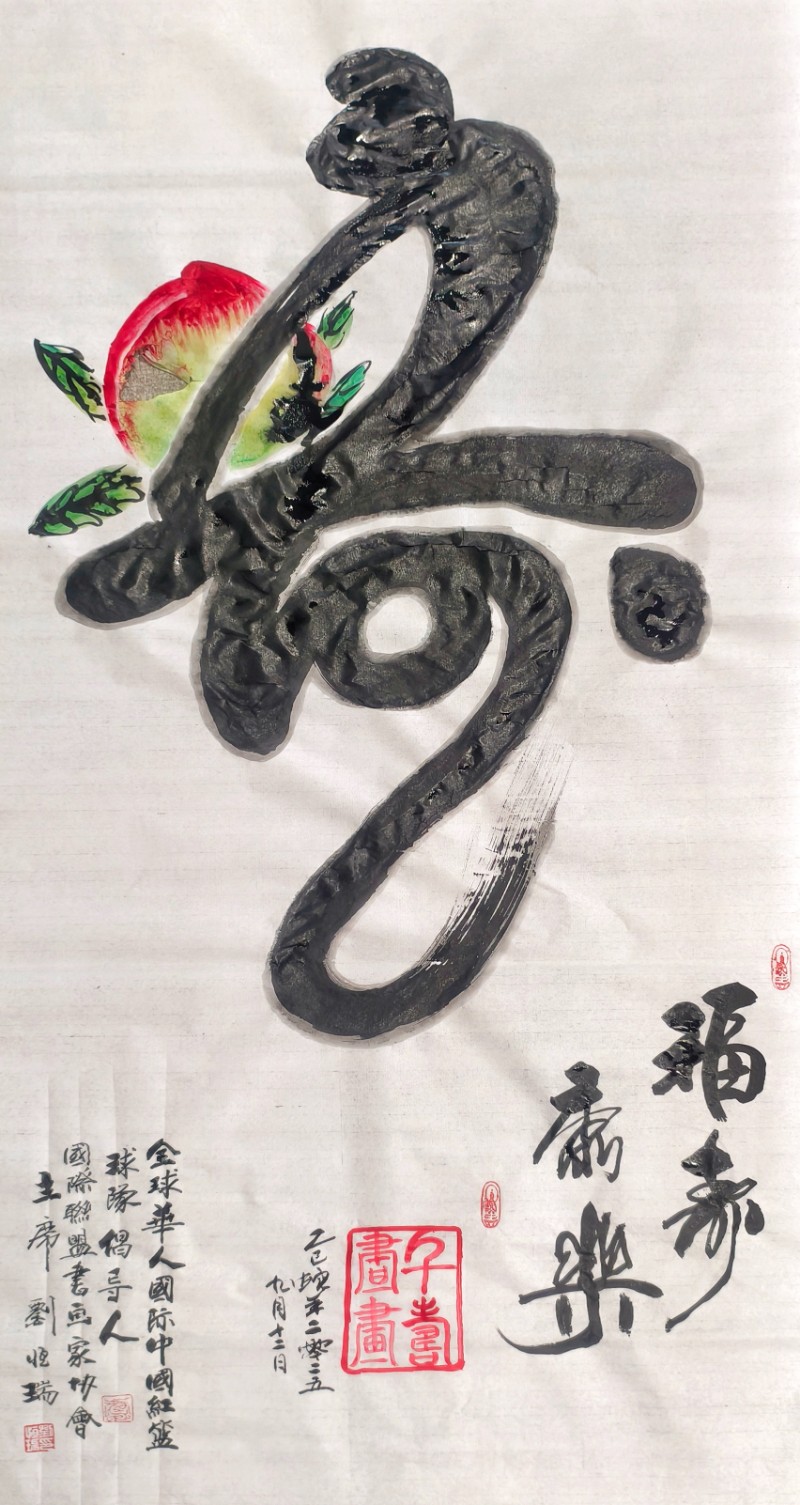 寿
福寿
康樂
乙巳蛇年二零二五
九月十二日
千壽
書畫
全球華人國际中國紅籃
球隊倡导人
國際聯盟書画家协會
主席劉恒瑞